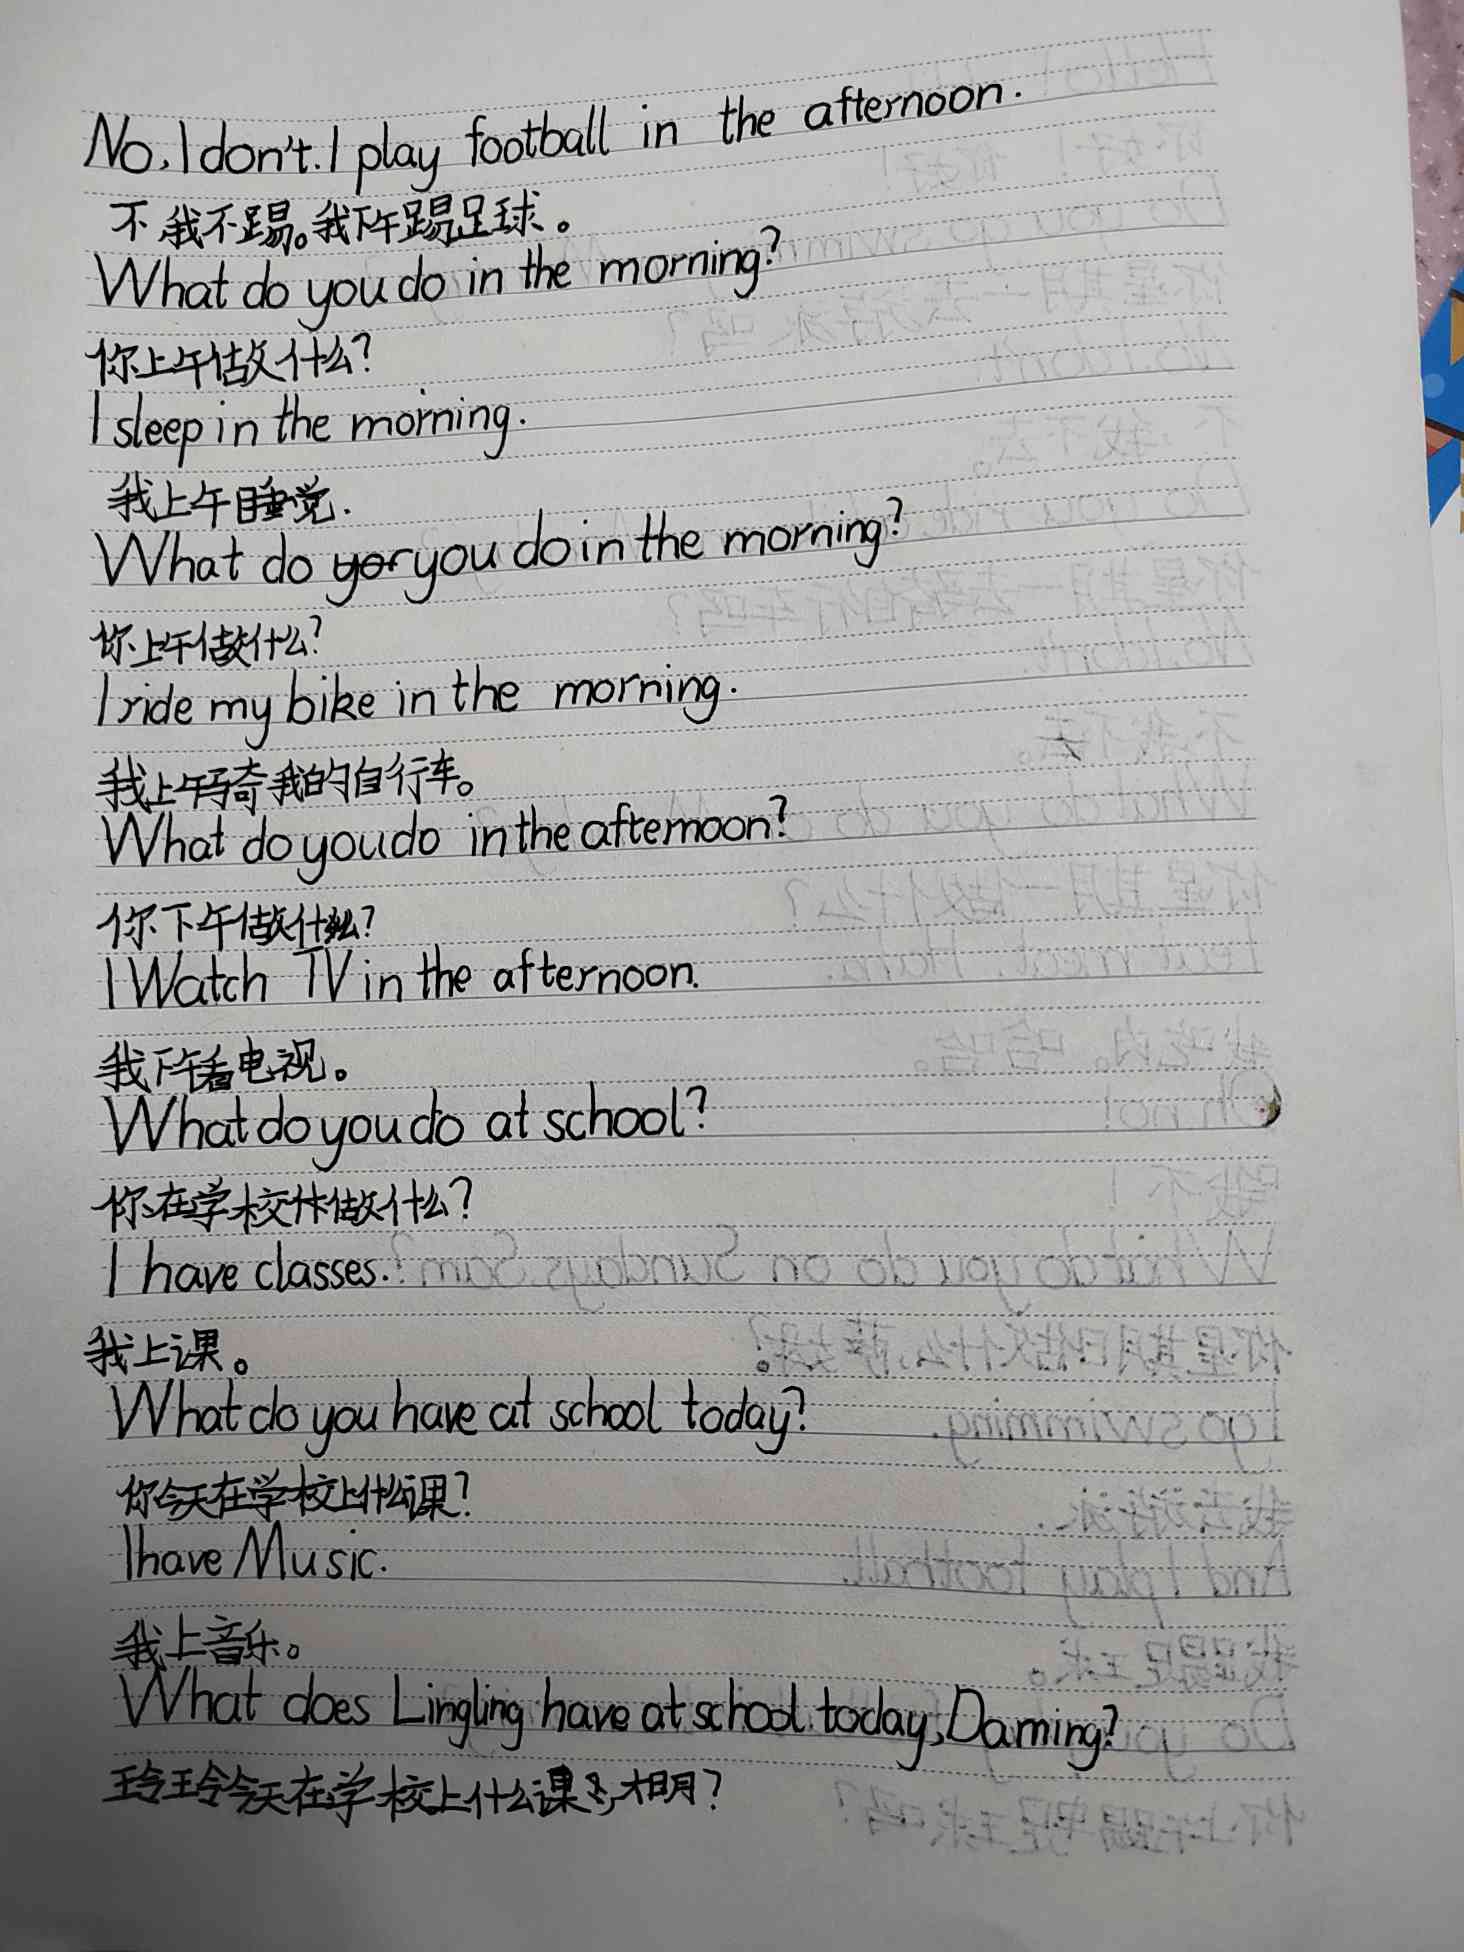 No, I don't. I play football in the afternoon.
不,我不踢。我下午踢足球。
What do you do in the morning?
你上午做什么?
I sleep in the morning.
我上午睡觉.
What do you do in the morning?
你上午做什么?
I ride my bike in the morning.
我上午骑我的自行车。
What do you do in the afternoon?
你下午做什么?
I Watch TV in the afternoon.
我下午看电视。
What do you do at school?
你在学校做什么?
I have classes.
我上课。
What do you have at school today?
你今天在学校上什么课?
I have Music.
我上音乐。
What does Lingling have at school today, Daming?
玲玲今天在学校上什么课,大明?